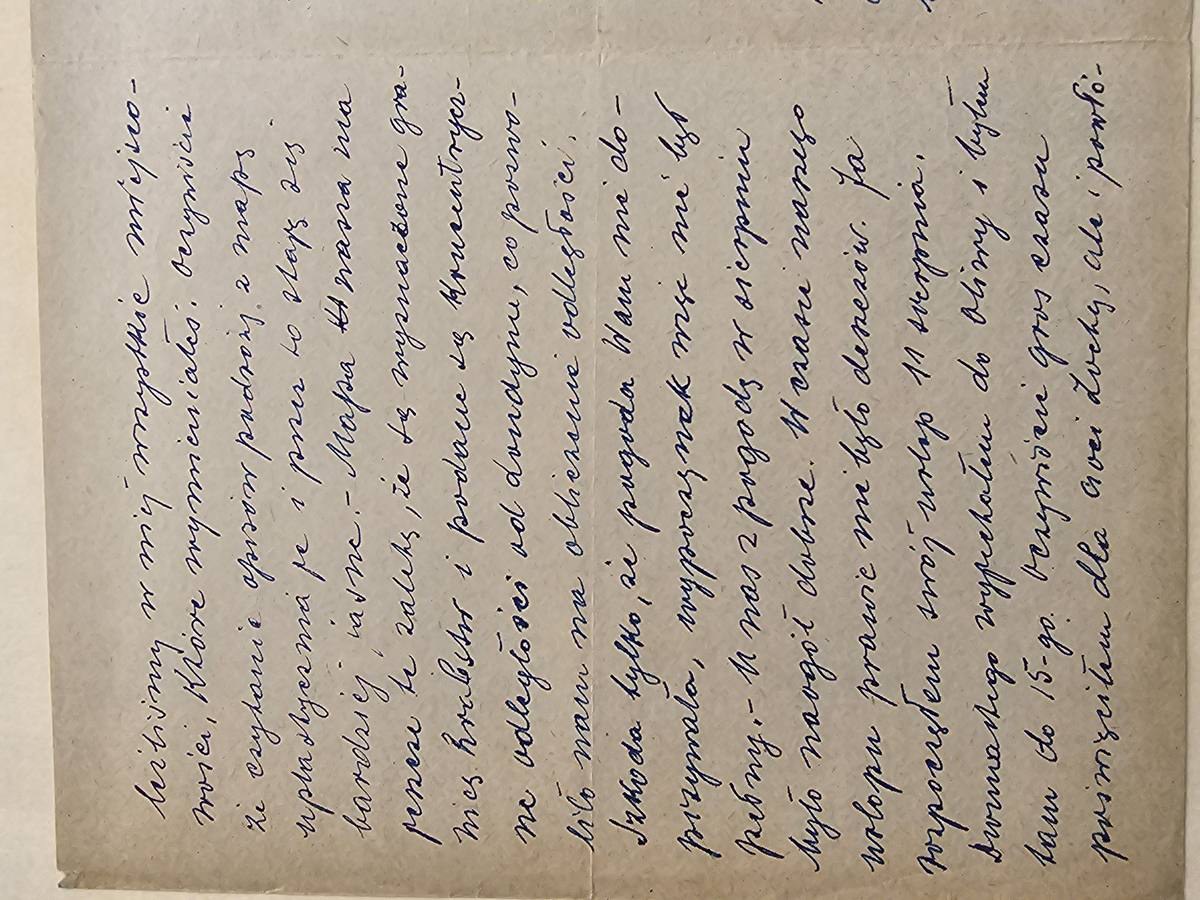 leźliśmy w niej wszystkie miejsco-
wości, które wymieniałeś. Oczywiście
że czytanie opisów podróży z mapą
uplastycznia je i przez to stają się
bardziej jasne. - Mapa Wasza ma
jeszcze tę zaletę, że są wyznaczone gra-
nice hrabstw i podane są koncentrycz-
ne odległości od Londynu, co pozwo-
liło nam na obliczenie odległości.
Szkoda tylko, że pogoda Wam nie do-
pisywała, wypoczynek więc nie był
pełny. - U nas z pogodą w sierpniu
było naogół dobrze. W czasie naszego
urlopu prawie nie było deszczów. Ja
rozpocząłem swój urlop 11 sierpnia.
Dwunastego wyjechałem do Oliwy i byłem
tam do 15-go. Oczywiście gros czasu
poświęciłem dla Cioci Lochy, ale i powłó-